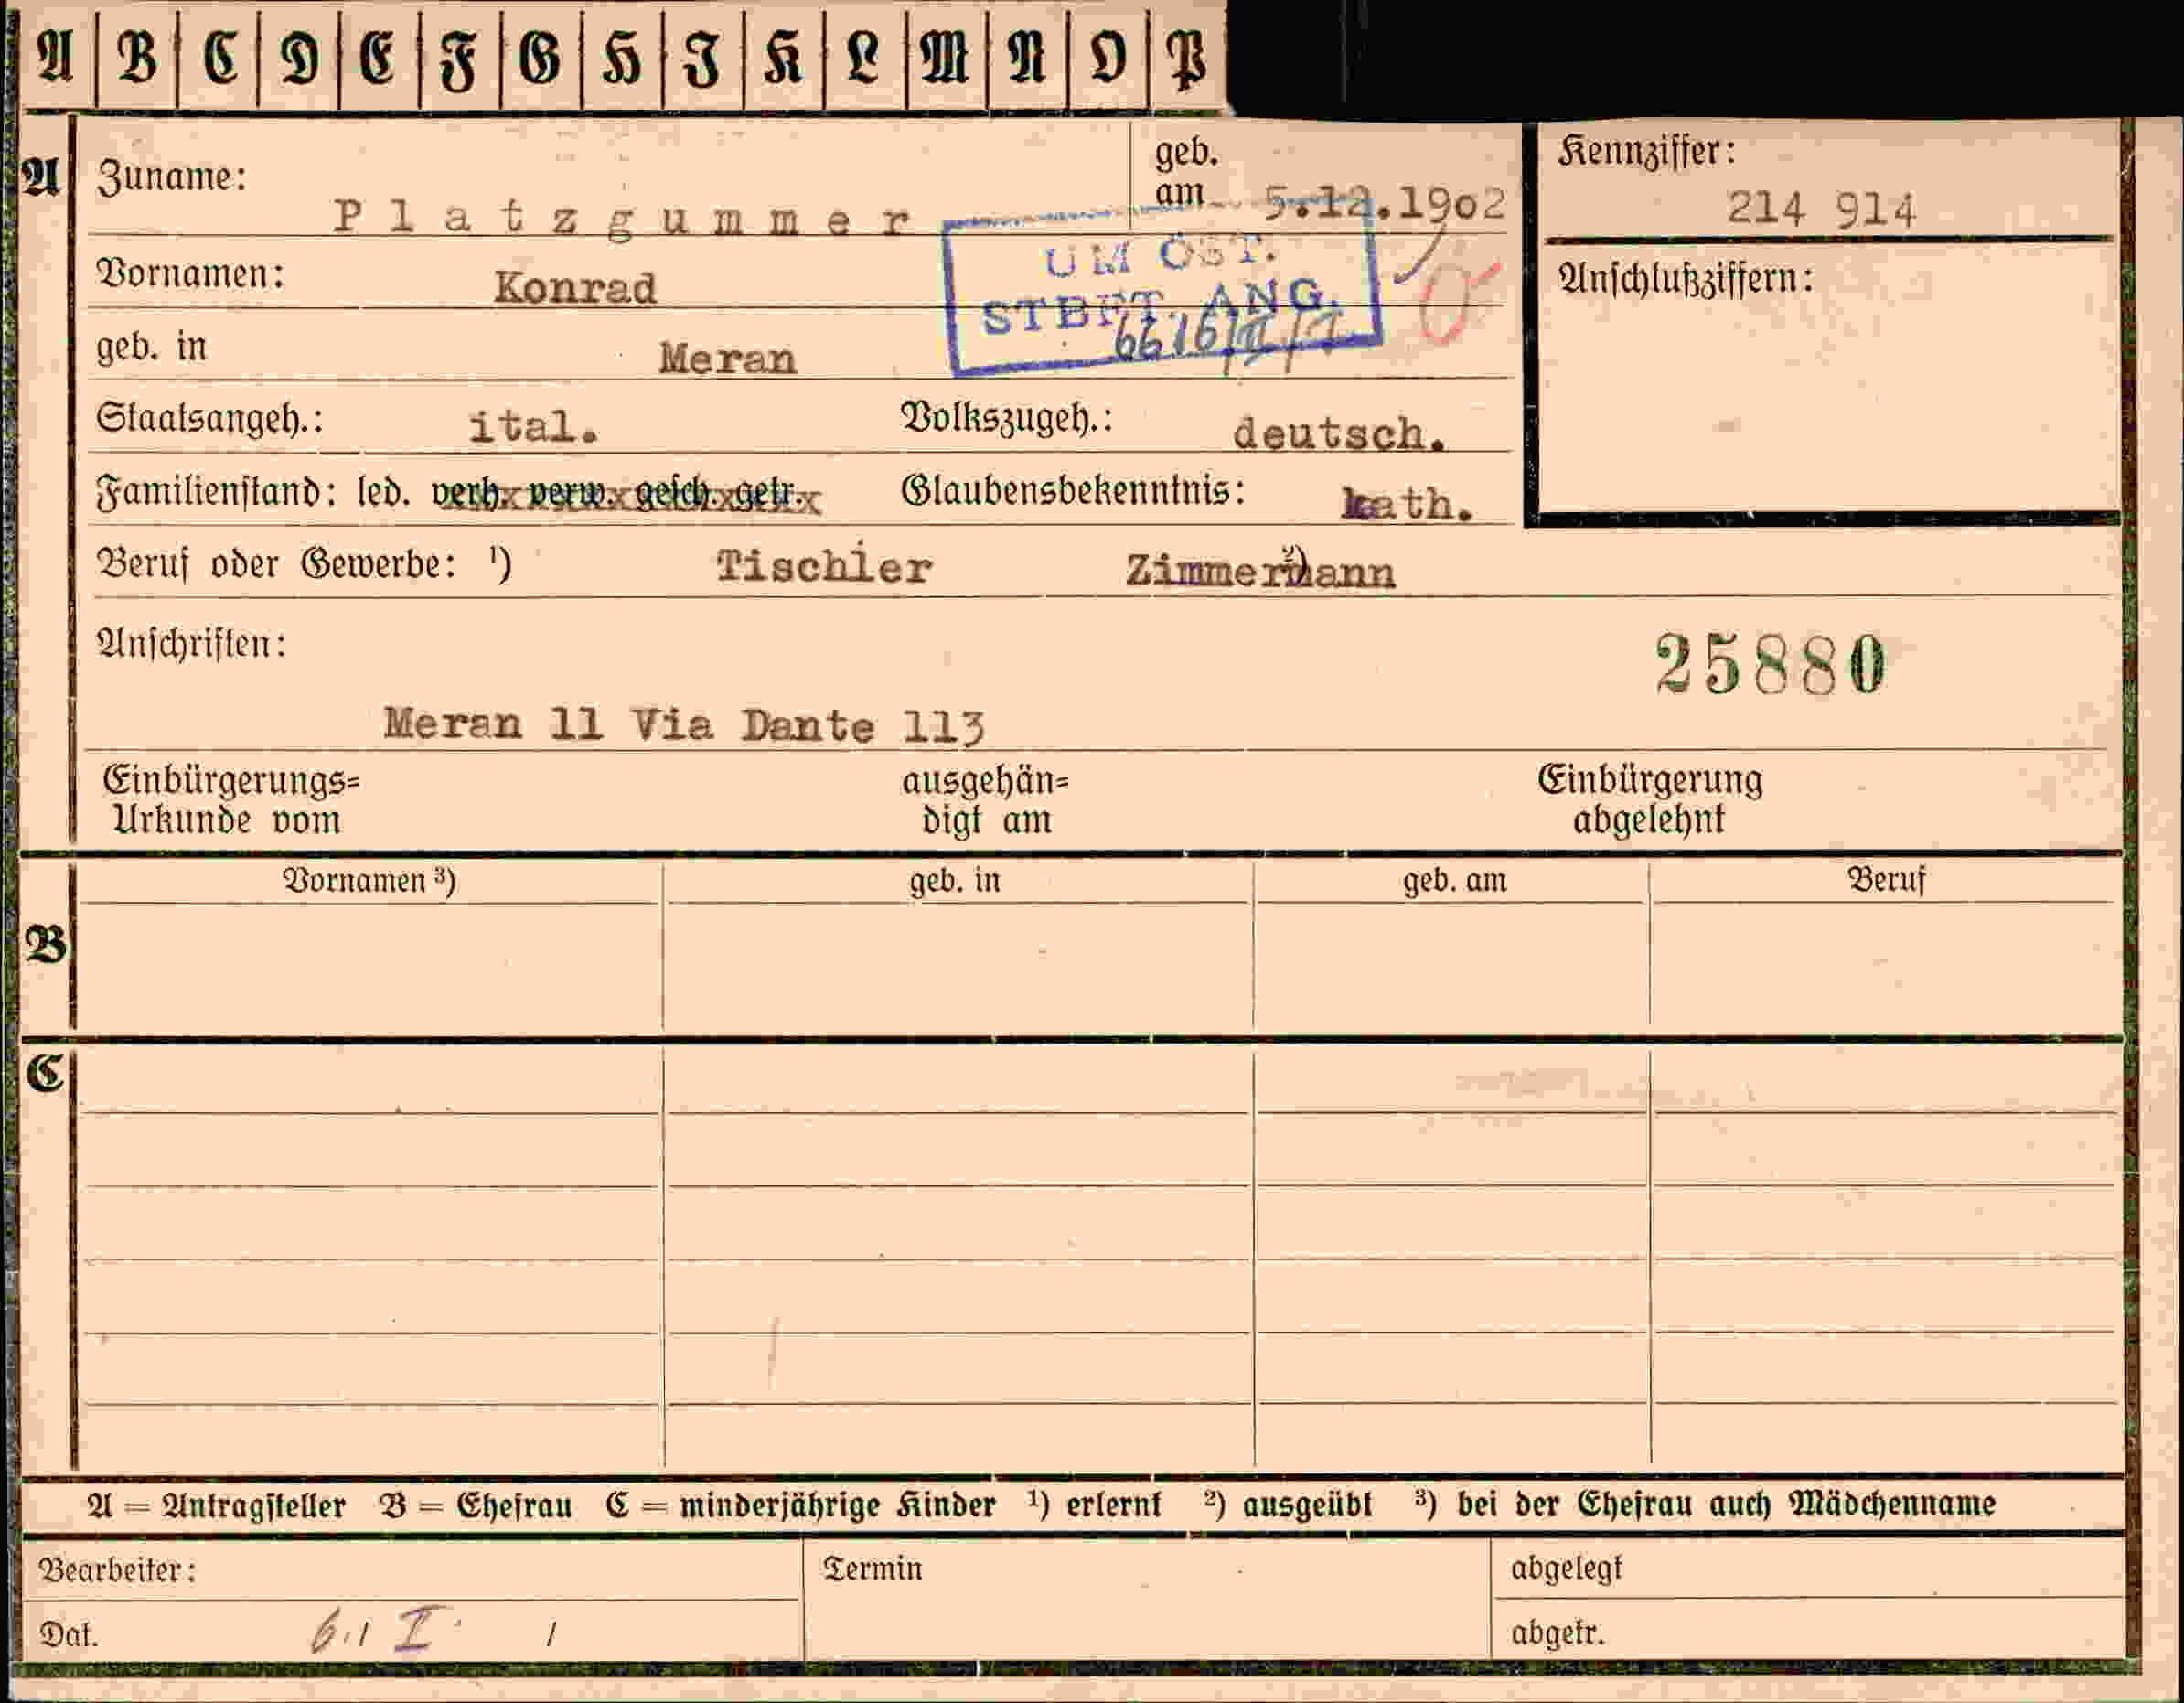 A B C D E F G H I K L M N O P
A Zuname: Platzgummer geb. am 5.12.1902
Kennziffer: 214 914
Vornamen: Konrad
UM ÖST.
STBFT. ANG.
Anschlußziffern:
geb. in Meran
Staatsangeh.: ital. Volkszugeh.: deutsch.
Familienstand: led. verh. verw. gesch. getr. Glaubensbekenntnis: kath.
Beruf oder Gewerbe: ¹) Tischler ²) Zimmermann
Anschriften: 25880
Meran 11 Via Dante 113
Einbürgerungs= ausgehän= Einbürgerung
Urkunde vom digt am abgelehnt
Vornamen ³) geb. in geb. am Beruf
B
C
A = Antragsteller B = Ehefrau C = minderjährige Kinder ¹) erlernt ²) ausgeübt ³) bei der Ehefrau auch Mädchenname
Bearbeiter: Termin abgelegt
Dat. abgetr.